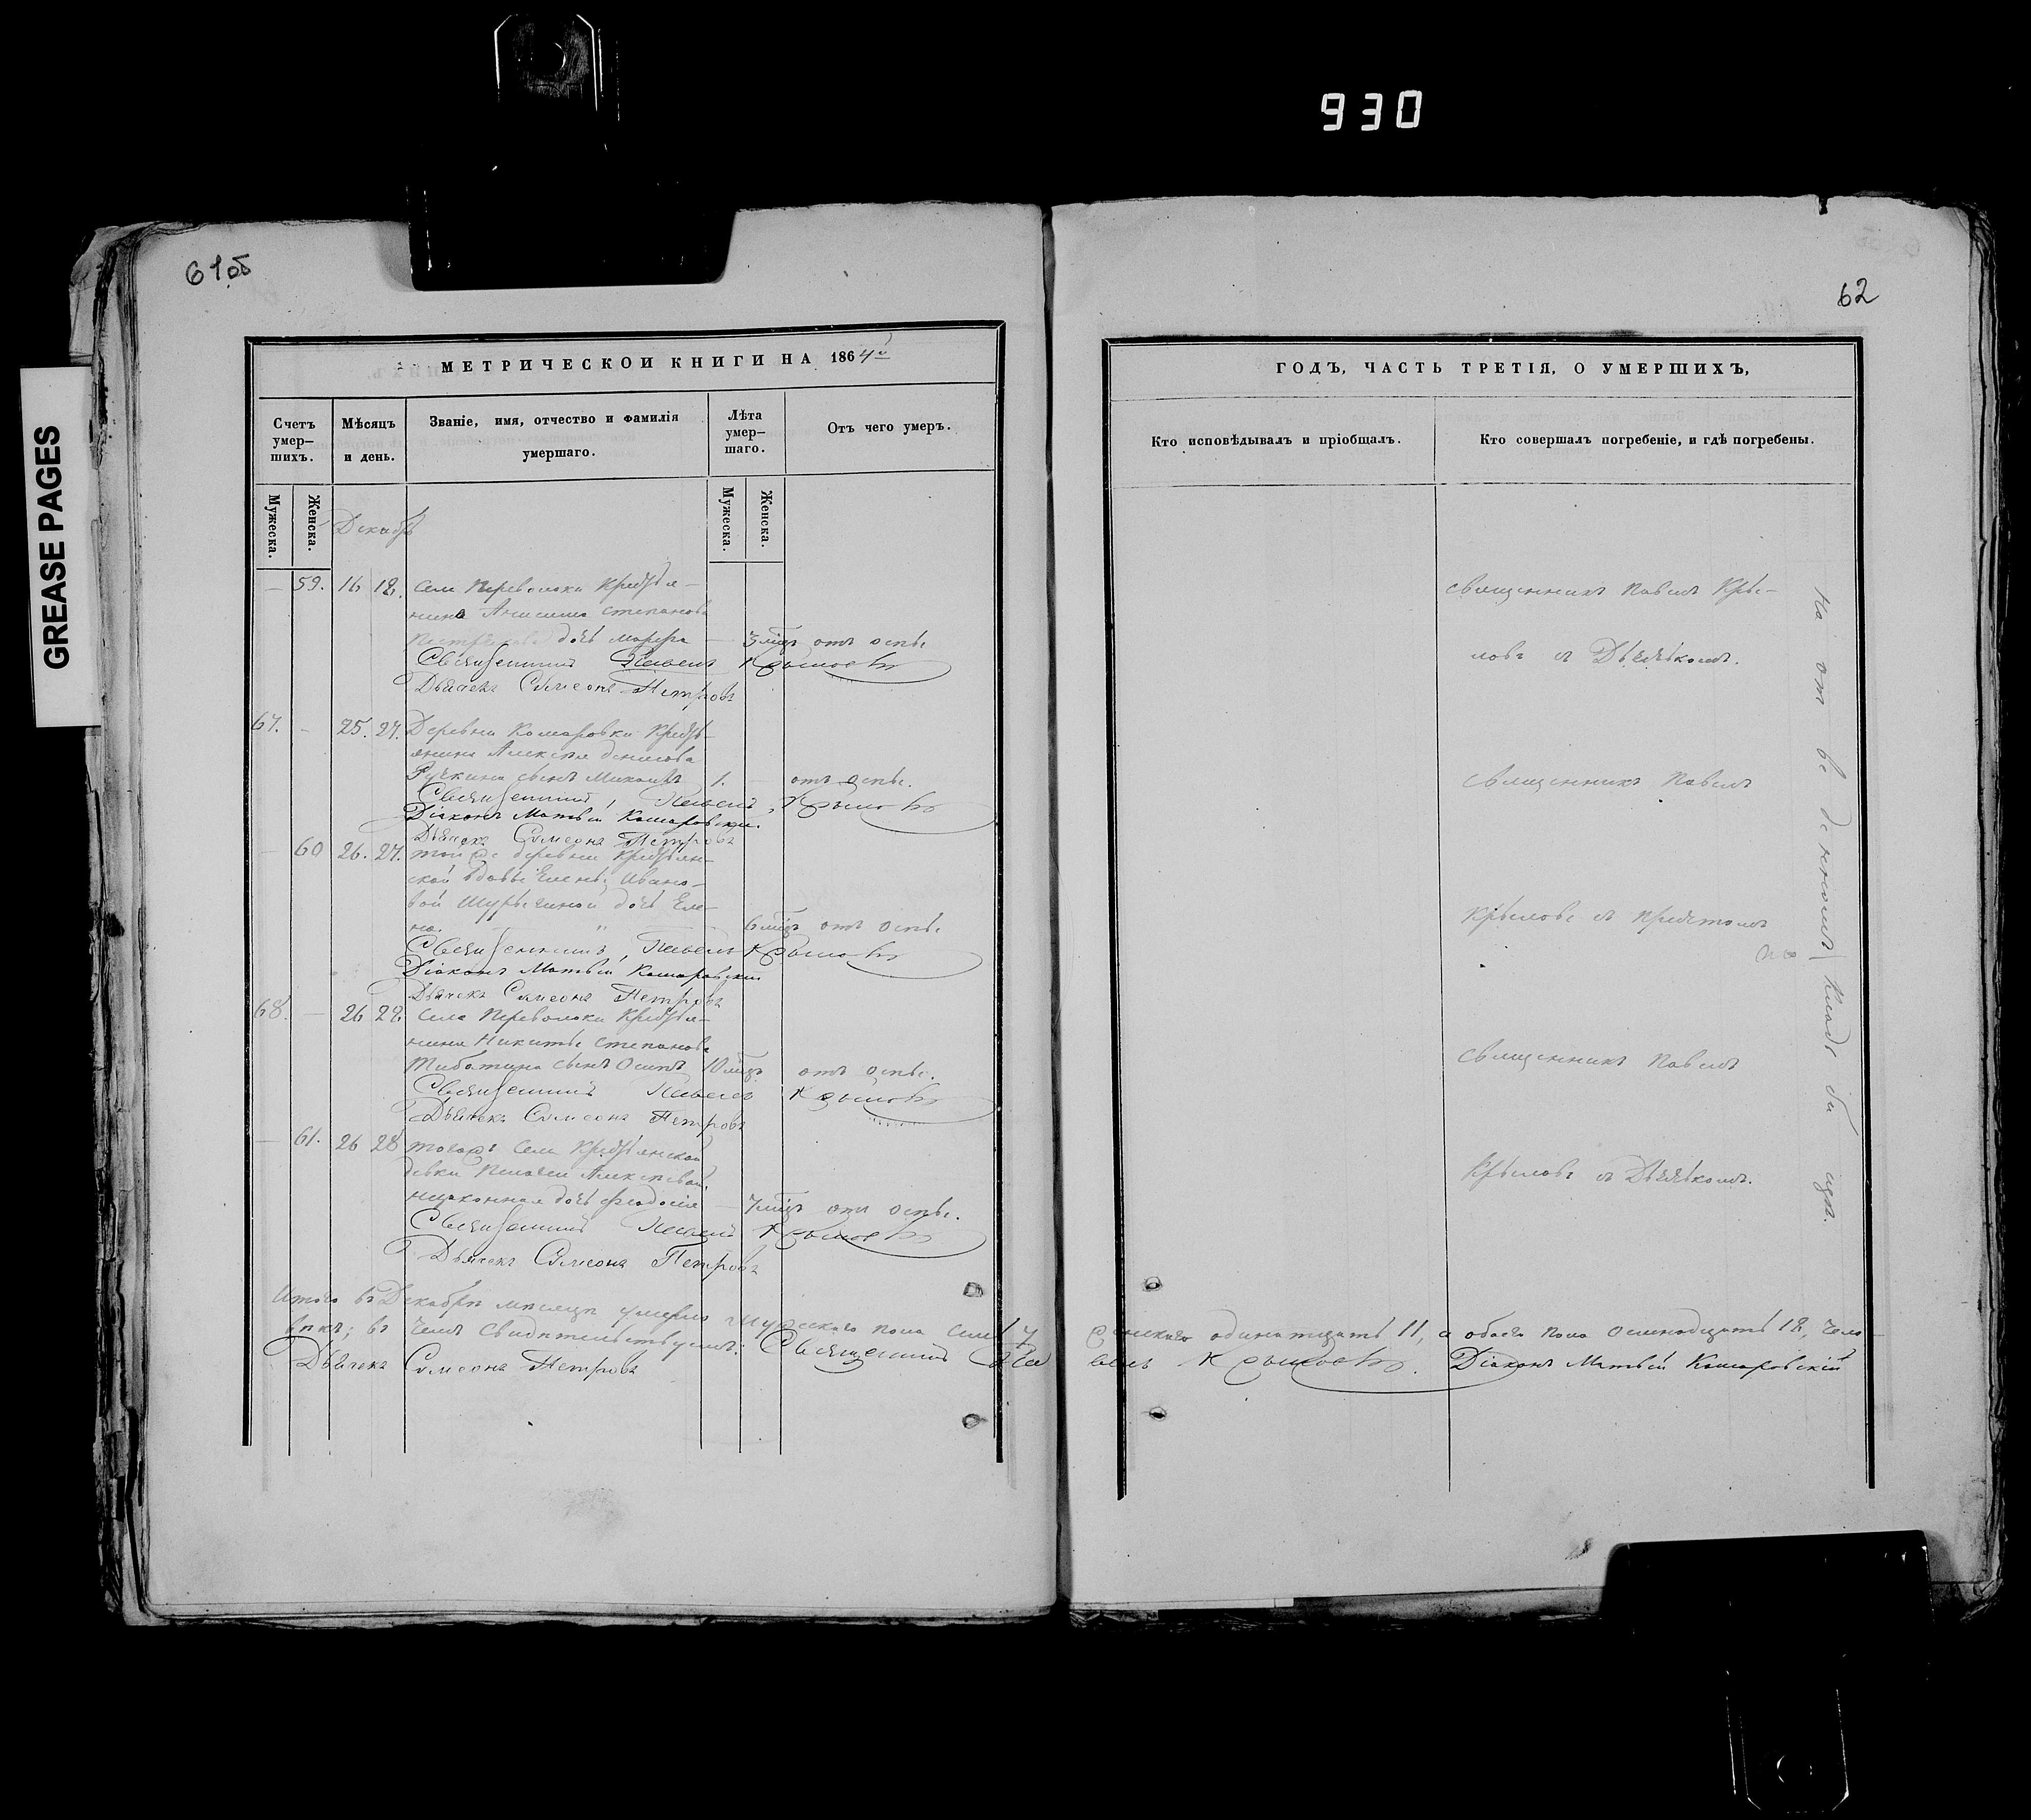 930
GREASE PAGES
61об
МЕТРИЧЕСКОЙ КНИГИ НА 1864й
Счетъ умер-
шихъ.
Мѣсяцъ
и день.
Званіе, имя, отчество и фамилія
умершаго.
Лѣта
умер-
шаго.
Отъ чего умеръ.
Мужеска.
Женска.
Мужеска.
Женска.
Декабрь
— 59. 16 18. села Переволоки Крестья-
нина Анисима Степанова
дочь Марфа — 3 мѣц. отъ оспы
Священникъ Павелъ Крыловъ
Дьячекъ Симеонъ Петровъ
67. — 25. 27. Деревни Комаровки Кресть-
янина Алексѣя Денисова
Ручкина сынъ Михаилъ 1. — отъ оспы.
Священникъ Павелъ Крыловъ
Діаконъ Матвѣй Комаровскій.
Дьячекъ Симеонъ Петровъ
— 60 26. 27. той же деревни Крестьян-
ской вдовы Елены Ивано-
вой дочь Еле-
на. — " 6 мѣц. отъ оспы.
Священникъ Павелъ Крыловъ
Діаконъ Матвѣй Комаровскій
Дьячекъ Симеонъ Петровъ
68. — 26 28. села Переволоки Крестья-
нина Никиты Степанова
сынъ Осипъ 10 мѣц. отъ оспы.
Священникъ Павелъ Крыловъ
Дьячекъ Симеонъ Петровъ
— 61. 26 28 тогожъ села Крестьянской
дѣвки Пелагеи Алексѣевой
незаконная дочь Феодосія — 7 мѣц. отъ оспы.
Священникъ Павелъ Крыловъ
Дьячекъ Симеонъ Петровъ
Итого въ Декабрѣ мѣсяцѣ умерло мужескаго пола семь 7
вѣкъ; въ чемъ свидѣтельствуемъ: Священникъ Па
Дьячекъ Симеонъ Петровъ
62
ГОДЪ, ЧАСТЬ ТРЕТІЯ, О УМЕРШИХЪ,
Кто исповѣдывалъ и пріобщалъ.
Кто совершалъ погребеніе, и гдѣ погребены.
священникъ Павелъ Кры-
ловъ съ Дьячькомъ.
священникъ Павелъ
Крыловъ съ причтомъ
священникъ Павелъ
Крыловъ съ Дьячькомъ.
На отведенномъ кладбищѣ.
женскаго одинатцать 11, а обоего пола осемнадцать 18, чело-
велъ Крыловъ. Діаконъ Матвѣй Комаровскій